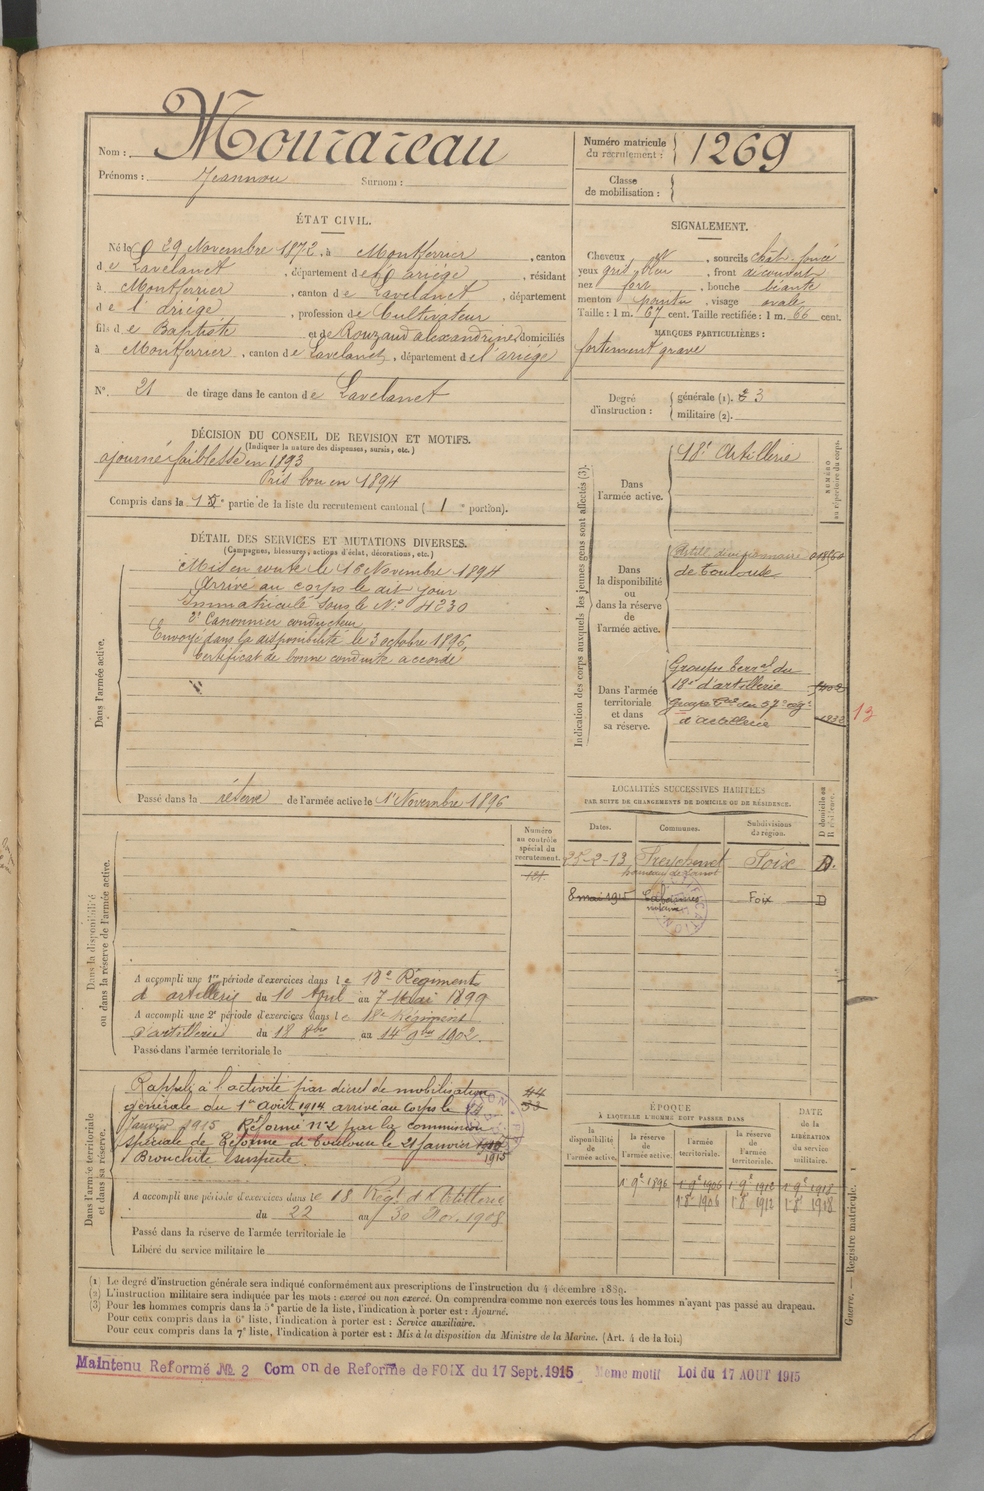 Nom : Mourareau
Prénoms : Jeannou Surnom :
Numéro matricule du recrutement : 1269
Classe de mobilisation :
ÉTAT CIVIL.
Né le 29 Novembre 1872, à Montferrier, canton
de Lavelanet, département de l'ariége, résidant
à Montferrier, canton de Lavelanet, département
de l'ariége, profession de Cultivateur
fils de Baptiste et de Rouzaud alexandrine, domiciliés
à Montferrier, canton de Lavelanet, département de l'ariége
N° 21 de tirage dans le canton de Lavelanet
SIGNALEMENT.
Cheveux, sourcils chât. foncé
yeux gris bleu, front découvert
nez fort, bouche béante
menton pointu, visage ovale
Taille : 1 m. 67 cent. Taille rectifiée : 1 m. 66 cent.
MARQUES PARTICULIÈRES :
fortement gravé
Degré d'instruction : générale (1). 3
militaire (2).
DÉCISION DU CONSEIL DE REVISION ET MOTIFS.
(Indiquer la nature des dispenses, sursis, etc.)
ajourné faiblesse en 1893
Pris bon en 1894
Compris dans la 1e partie de la liste du recrutement cantonal ( 1 e portion).
DÉTAIL DES SERVICES ET MUTATIONS DIVERSES.
(Campagnes, blessures, actions d'éclat, décorations, etc.)
Dans l'armée active.
Mis en route le 16 Novembre 1894
Arrivé au corps le dit jour
Immatriculé sous le N° 4230
2e Canonnier conducteur
Envoyé dans la disponibilité le 3 octobre 1896,
Certificat de bonne conduite accordé
Passé dans la réserve de l'armée active le 1er Novembre 1896
Indication des corps auxquels les jeunes gens sont affectés (3).
NUMÉRO au répertoire du corps.
Dans l'armée active.
18e Artillerie
Dans la disponibilité ou dans la réserve de l'armée active.
Artill. divisionnaire
de Toulouse
Dans l'armée territoriale et dans sa réserve.
Groupe terral du
18e d'artillerie
Groupe tal du 57e rég.
d'artillerie
13
LOCALITÉS SUCCESSIVES HABITÉES
PAR SUITE DE CHANGEMENTS DE DOMICILE OU DE RÉSIDENCE.
Dates. Communes. Subdivisions de région. D domicile ou R résidence.
25-2-13 Freychenet Foix D.
8 mai 1915 Cabannes Foix D
Numéro au contrôle spécial du recrutement.
121
Dans la disponibilité ou dans la réserve de l'armée active.
A accompli une 1re période d'exercices dans le 18e Régiment
d'artillerie du 10 Avril au 7 Mai 1899
A accompli une 2e période d'exercices dans le 18e Régiment
d'artillerie du 18 8bre au 14 9bre 1902.
Passé dans l'armée territoriale le
Dans l'armée territoriale et dans sa réserve.
Rappelé à l'activité par décret de mobilisation
générale du 1er Août 1914 arrivé au corps le
Janvier 1915 Réformé n°2 par la commission
spéciale de Réforme de Toulouse le 21 Janvier
1915
Bronchite suspecte.
44
53
A accompli une période d'exercices dans le 18 Régt d'Artillerie
du 22 au 30 Nov. 1908
Passé dans la réserve de l'armée territoriale le
Libéré du service militaire le
ÉPOQUE
À LAQUELLE L'HOMME DOIT PASSER DANS
DATE de la LIBÉRATION du service militaire.
la disponibilité de l'armée active. la réserve de l'armée active. l'armée territoriale. la réserve de l'armée territoriale.
1 9e 1896 1 9e 1906 1 9e 1912 1 9e 1918
1 8 1906 1 8 1912 1 8 1918
(1) Le degré d'instruction générale sera indiqué conformément aux prescriptions de l'instruction du 4 décembre 1889.
(2) L'instruction militaire sera indiquée par les mots : exercé ou non exercé. On comprendra comme non exercés tous les hommes n'ayant pas passé au drapeau.
(3) Pour les hommes compris dans la 5e partie de la liste, l'indication à porter est : Ajourné.
Pour ceux compris dans la 6e liste, l'indication à porter est : Service auxiliaire.
Pour ceux compris dans la 7e liste, l'indication à porter est : Mis à la disposition du Ministre de la Marine. (Art. 4 de la loi.)
Guerre. — Registre matricule. 1
Maintenu Reformé № 2 Com on de Reforme de FOIX du 17 Sept. 1915 Meme motif Loi du 17 AOUT 1915